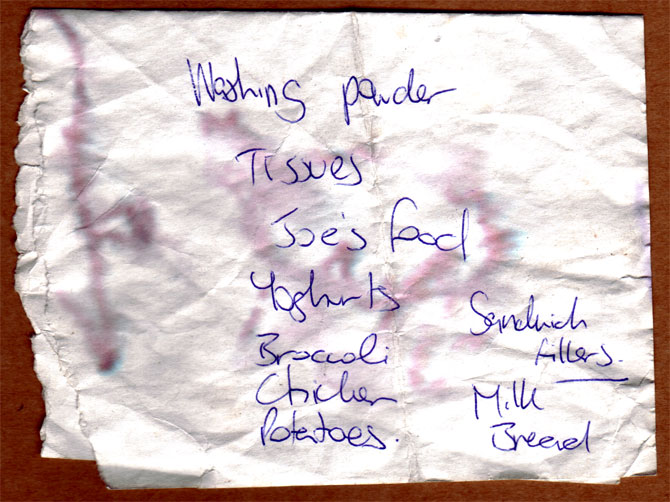 Washing powder
Tissues
Joe's food
Yoghurts
Broccoli
Chicken
Potatoes.
Sandwich
fillers.
Milk
Bread